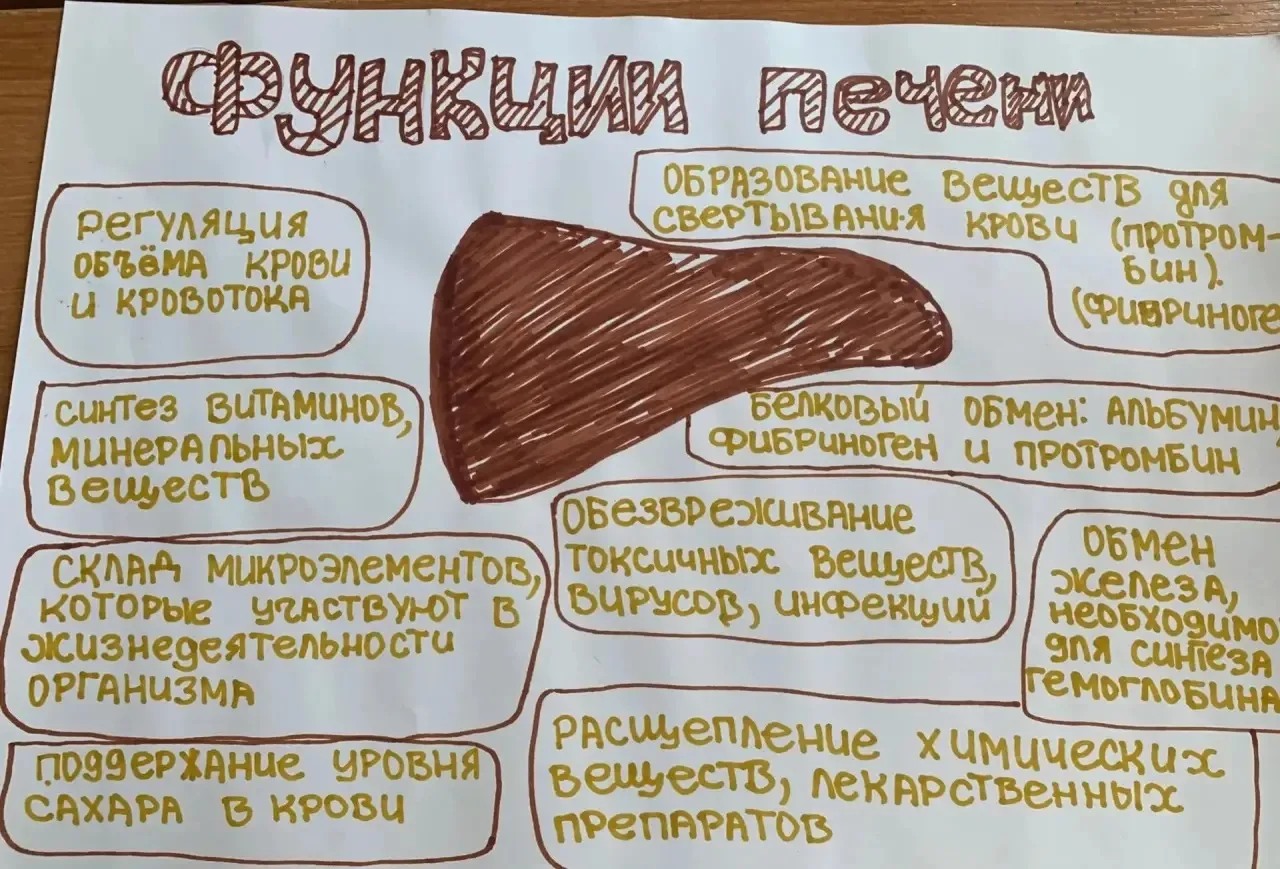 Функции печени
РЕГУЛЯЦИЯ
ОБЪЁМА КРОВИ
И КРОВОТОКА
ОБРАЗОВАНИЕ ВЕЩЕСТВ для
СВЕРТЫВАНИЯ КРОВИ (ПРОТРОМ-
БИН).
(ФИБРИНОГЕ
СИНТЕЗ ВИТАМИНОВ,
МИНЕРАЛЬНЫХ
ВЕЩЕСТВ
БЕЛКОВЫЙ ОБМЕН: АЛЬБУМИН,
ФИБРИНОГЕН И ПРОТРОМБИН
СКЛАД МИКРОЭЛЕМЕНТОВ,
КОТОРЫЕ УЧАСТВУЮТ В
ЖИЗНЕДЕЯТЕЛЬНОСТИ
ОРГАНИЗМА
ОБЕЗВРЕЖИВАНИЕ
ТОКСИЧНЫХ ВЕЩЕСТВ,
ВИРУСОВ, ИНФЕКЦИЙ
ОБМЕН
ЖЕЛЕЗА,
НЕОБХОДИМО
ДЛЯ СИНТЕЗА
ГЕМОГЛОБИНА
ПОДДЕРЖАНИЕ УРОВНЯ
САХАРА В КРОВИ
РАСЩЕПЛЕНИЕ ХИМИЧЕСКИХ
ВЕЩЕСТВ, ЛЕКАРСТВЕННЫХ
ПРЕПАРАТОВ